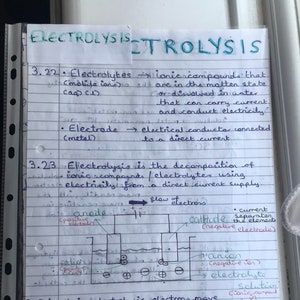 ELECTROLYSIS
TROLYSIS
3.22 • Electrolytes → ionic compounds that
(mobile ions) are in the molten state
(aq) (l) or dissolved in water
that can carry current
and conduct electricity
• Electrode → electrical conductor connected
(metal) to a direct current
3.23 Electrolysis is the decomposition of
ionic compounds / electrolytes using
electricity from a direct current supply
flow of
electrons
anode
cathode
(negative
electrode)
• current
separates
the elements
anion
(negative ion)
electrolyte
solution
electrons move